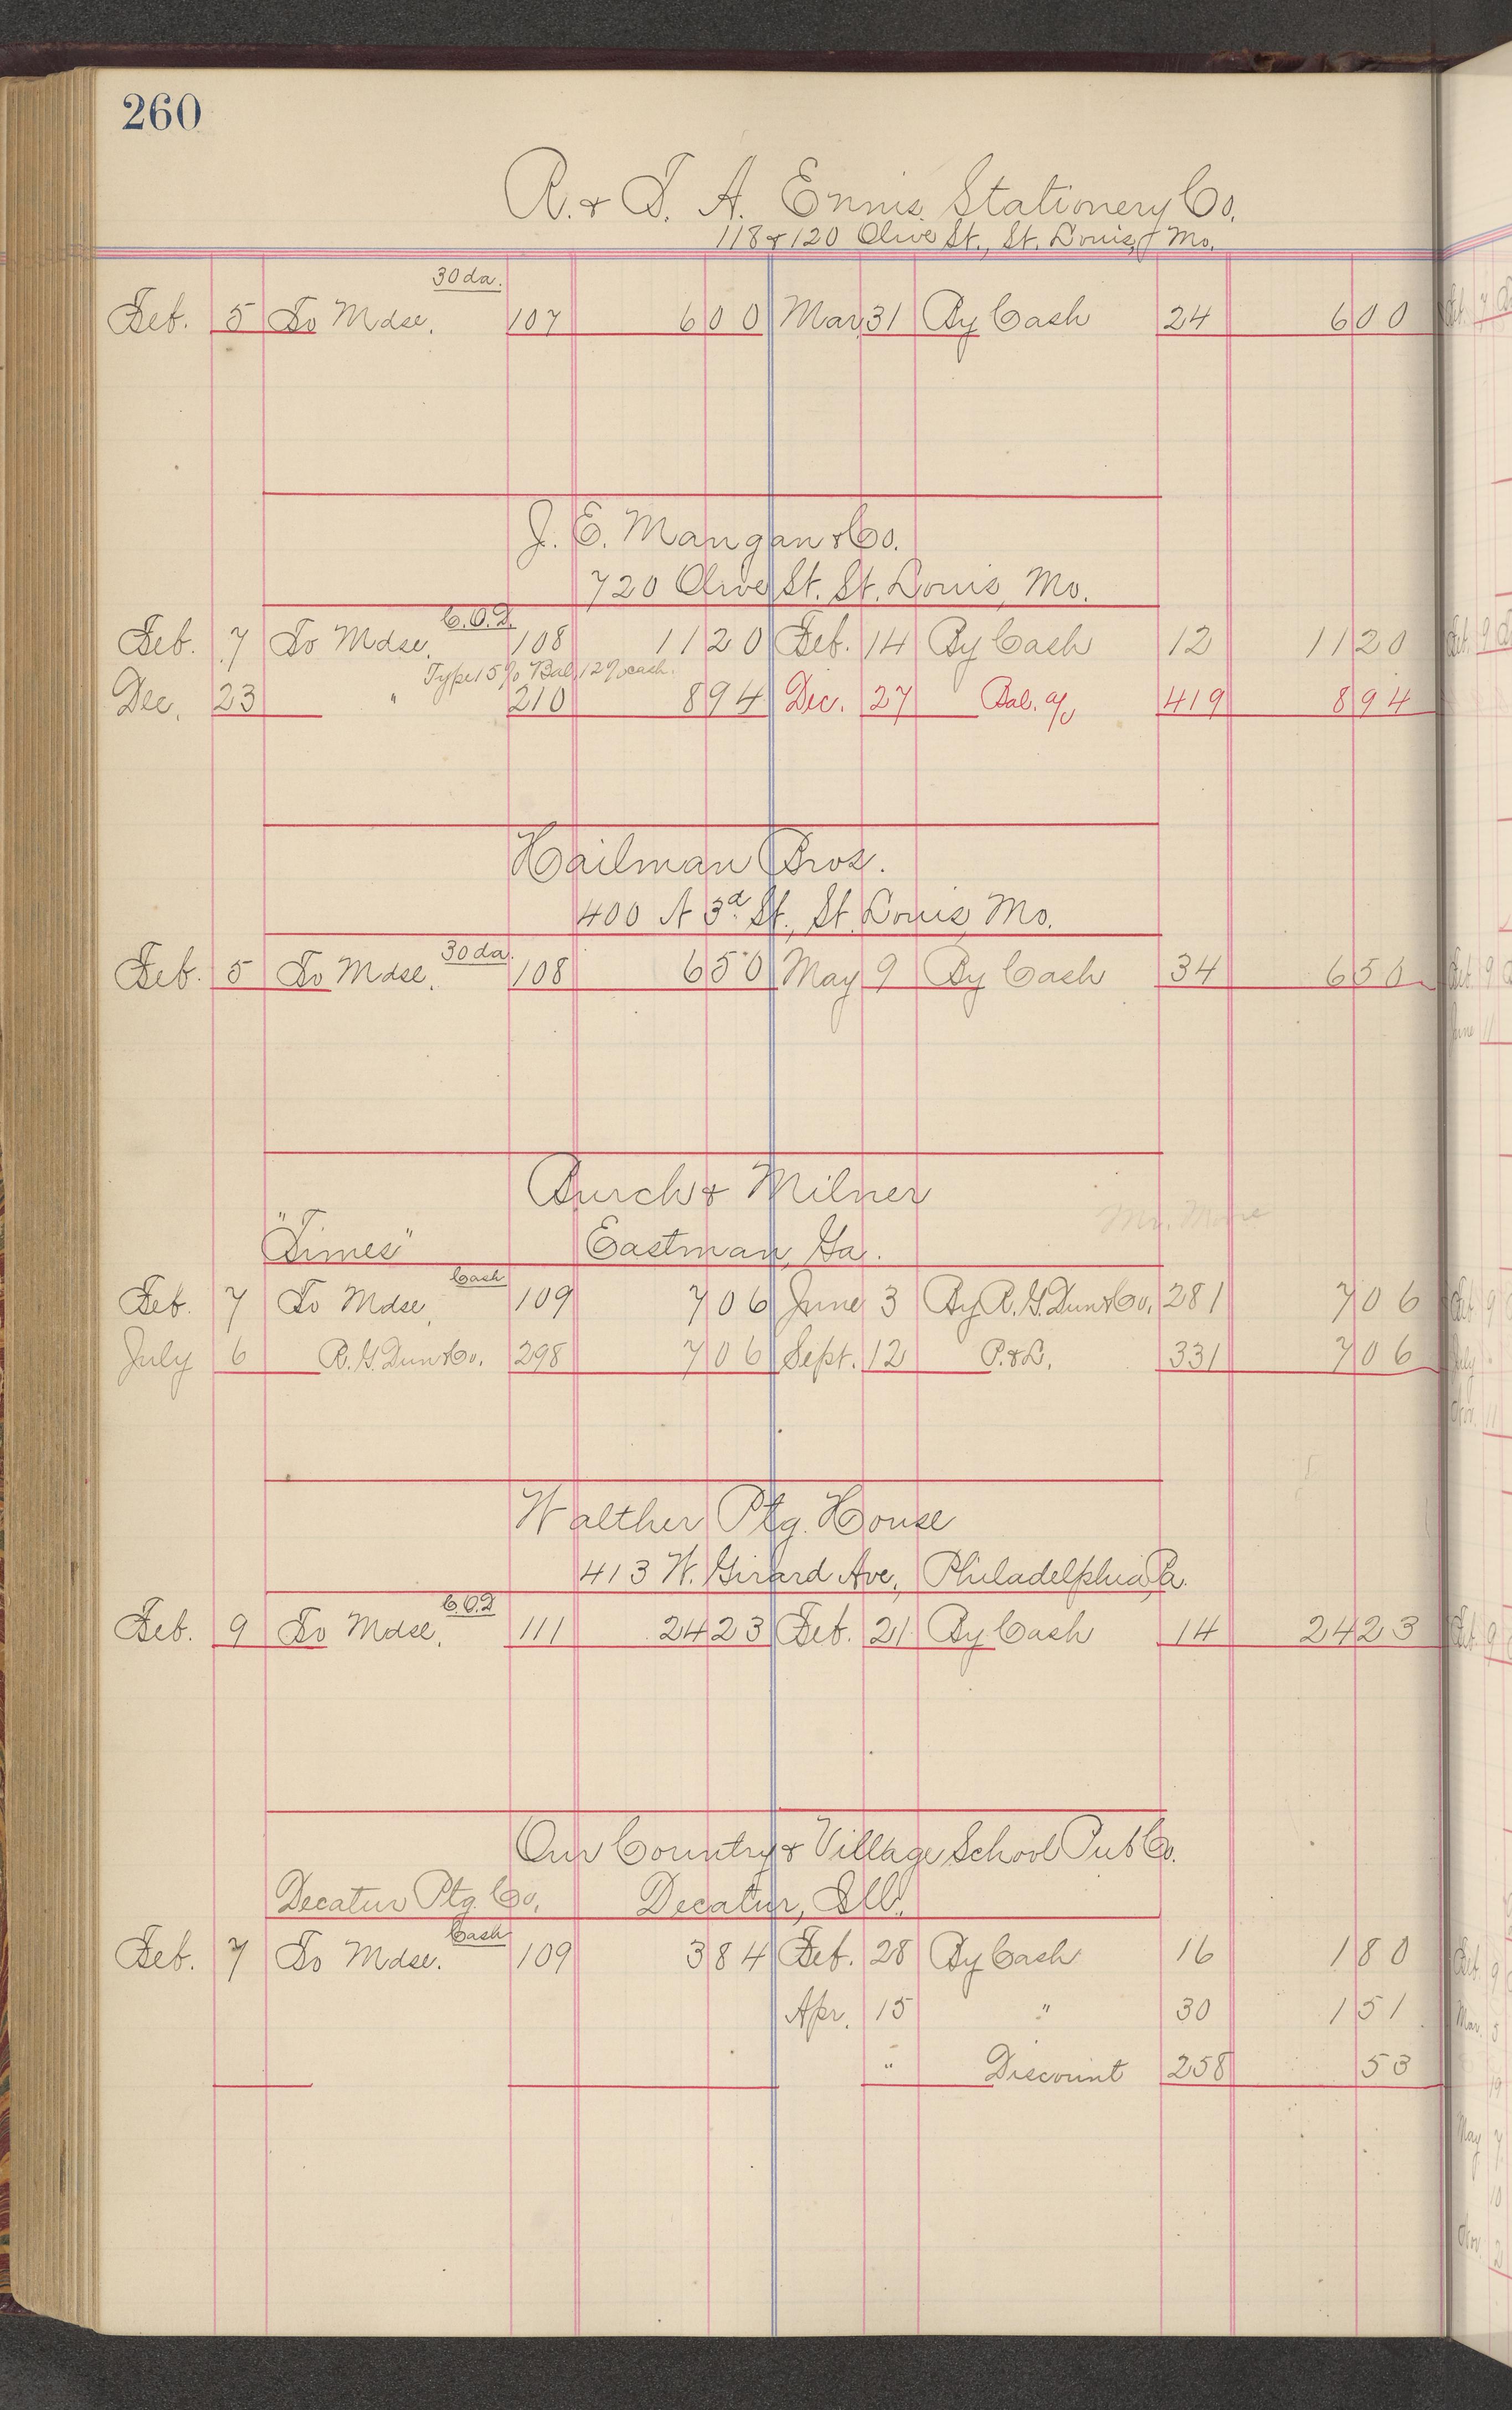 260
R. & T. A. Ennis Stationery Co.
118 & 120 Olive St., St. Louis, Mo.
30 da.
Feb. 5 To Mdse. 107 6 00 Mar 31 By Cash 24 6 00
J. E. Mangan & Co.
720 Olive St. St. Louis, Mo.
C.O.D.
Feb. 7 To Mdse. 108 11 20 Feb. 14 By Cash 12 11 20
Type 15% Bal. 12% cash.
Dec. 23 " 210 8 94 Dec. 27 Bal. a/c 419 8 94
Hailman Bros.
400 N 3d. St., St. Louis, Mo.
30 da.
Feb. 5 To Mdse. 108 6 50 May 9 By Cash 34 6 50
Burch & Milner
"Times" Eastman, Ga.
Mr.
Cash
Feb. 7 To Mdse. 109 7 06 June 3 By R. G. Dun & Co. 281 7 06
July 6 R. G. Dun & Co. 298 7 06 Sept. 12 P. & L. 331 7 06
Walther Ptg. House
413 W. Girard Ave., Philadelphia, Pa.
C.O.D
Feb. 9 To Mdse. 111 24 23 Feb. 21 By Cash 14 24 23
Our Country & Village School Pub Co.
Decatur Ptg. Co. Decatur, Ill.
Cash
Feb. 7 To Mdse. 109 3 84 Feb. 28 By Cash 16 1 80
Apr. 15 " 30 1 51
" Discount 258 53